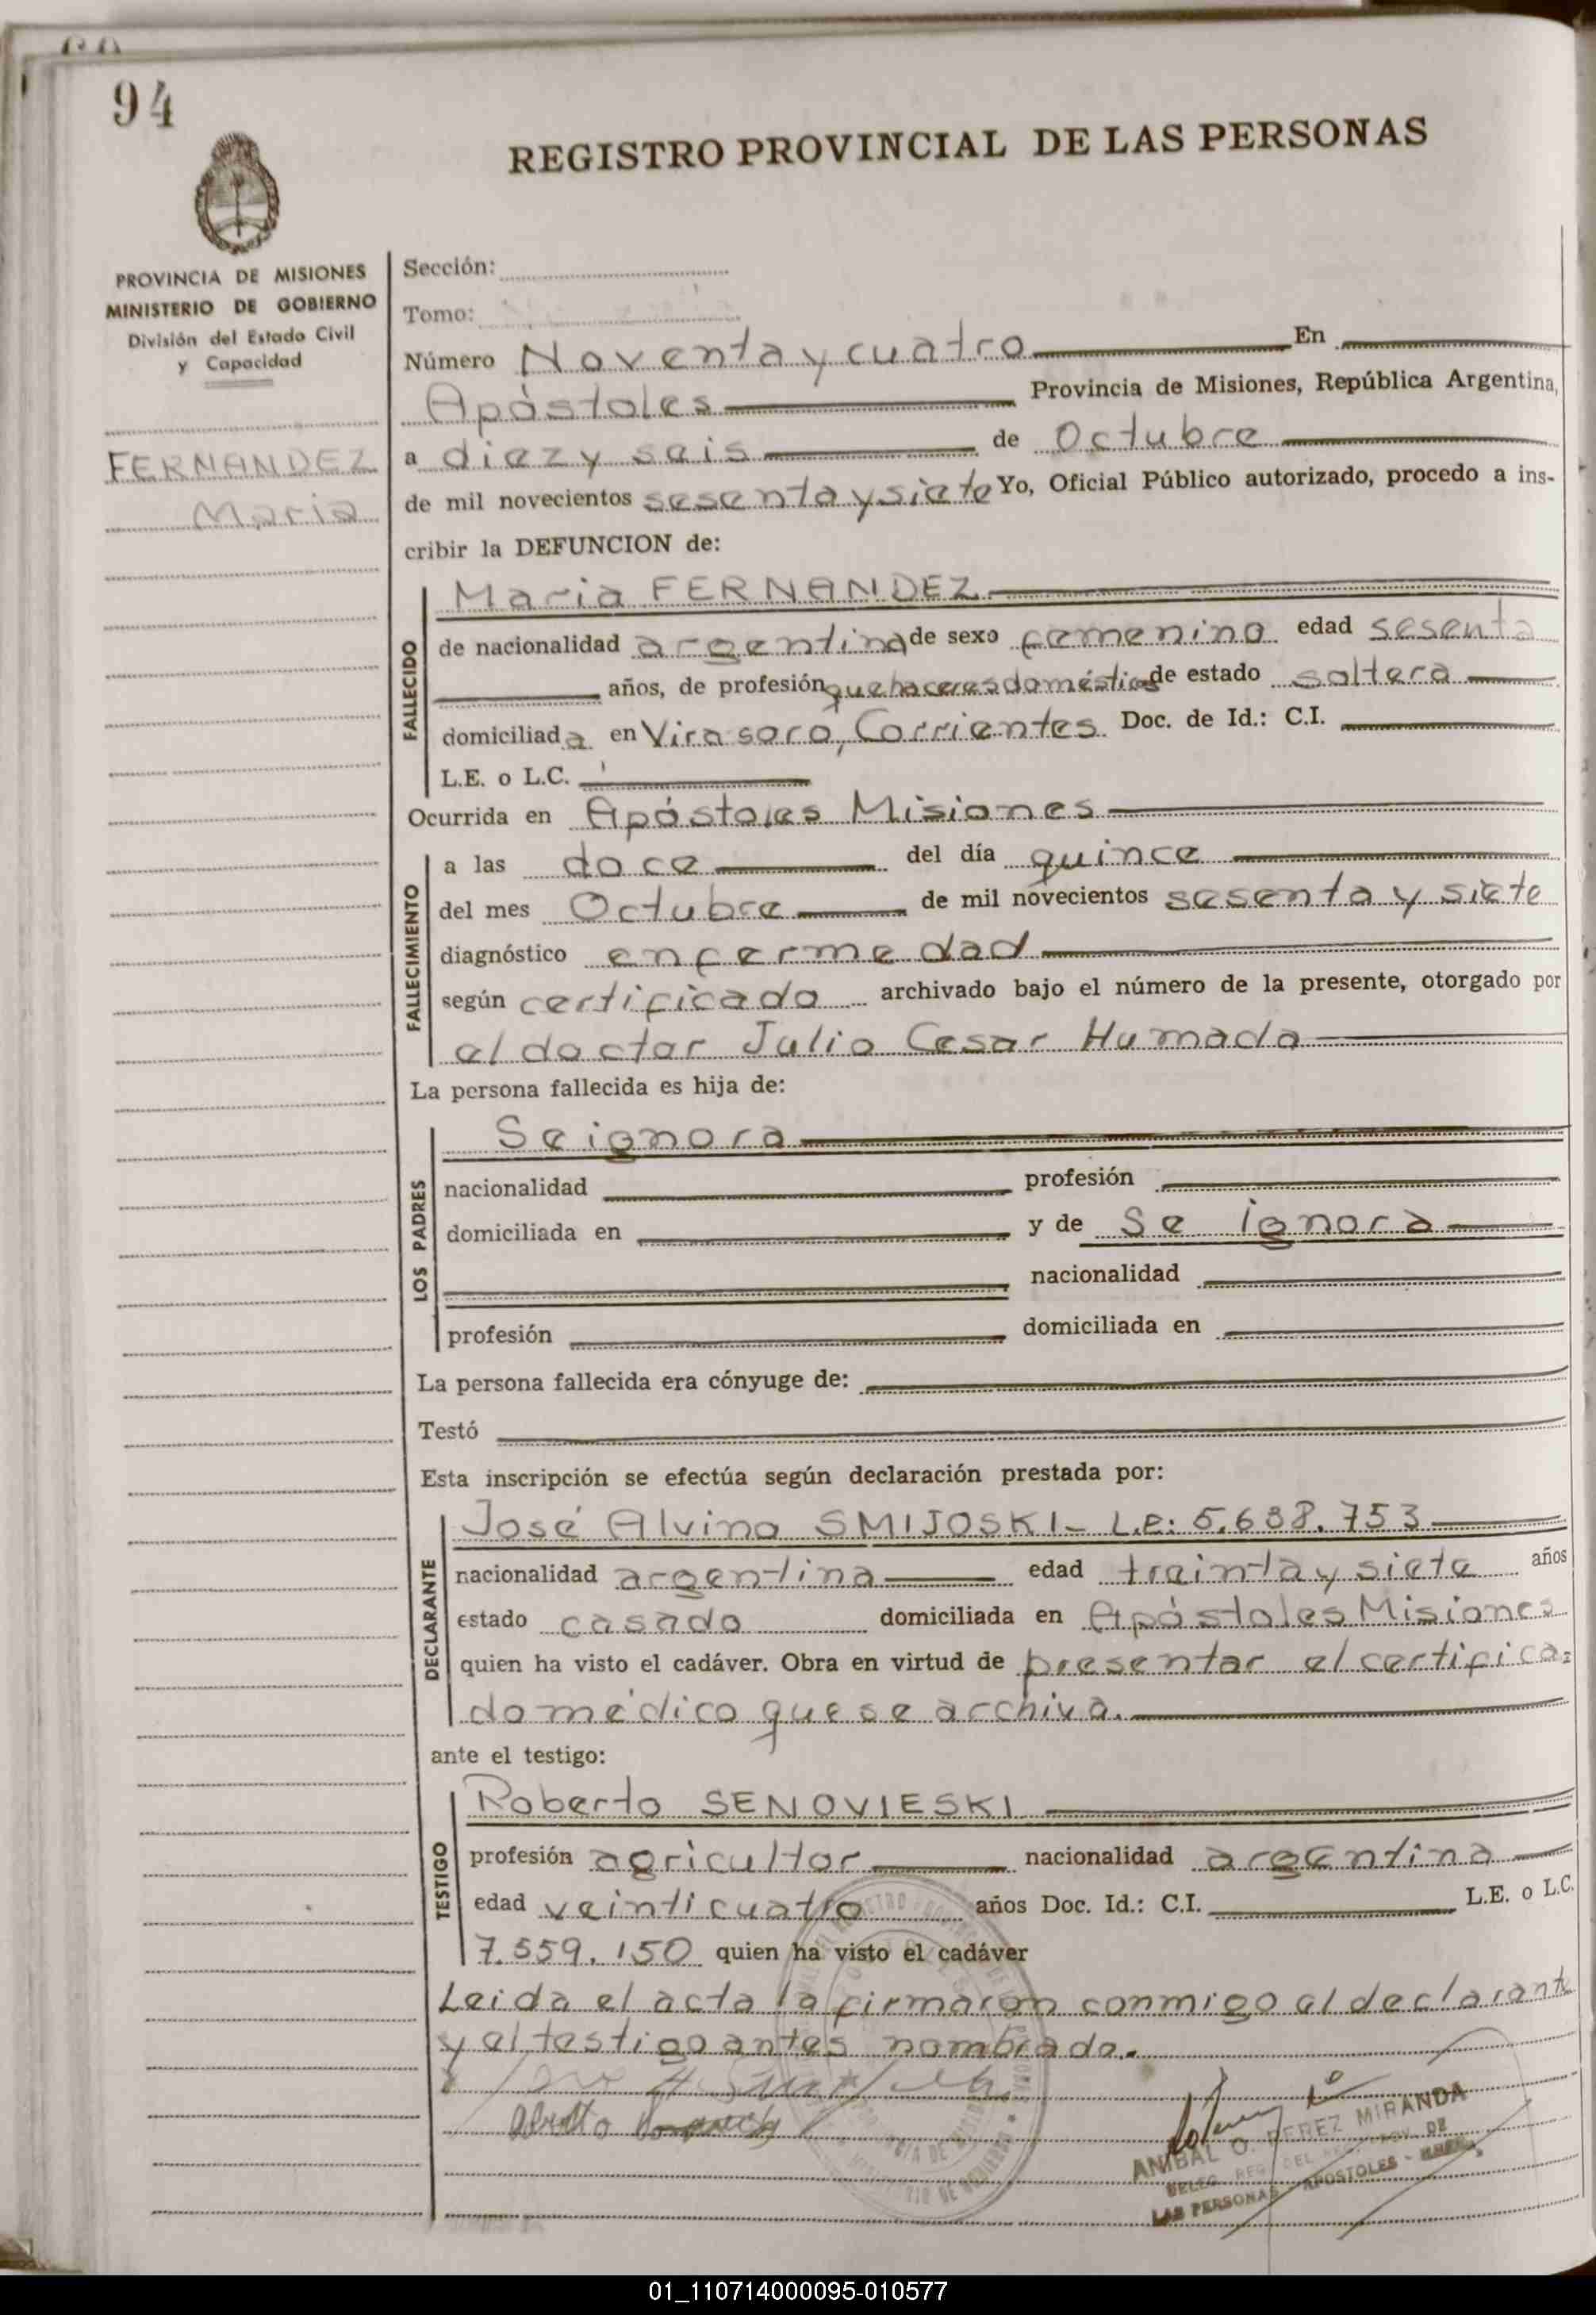 94
REGISTRO PROVINCIAL DE LAS PERSONAS
PROVINCIA DE MISIONES
MINISTERIO DE GOBIERNO
División del Estado Civil
y Capacidad
FERNANDEZ
Maria
Sección:
Tomo:
Número Noventa y cuatro En
Apóstoles Provincia de Misiones, República Argentina,
a diez y seis de Octubre
de mil novecientos sesenta y siete Yo, Oficial Público autorizado, procedo a ins-
cribir la DEFUNCION de:
FALLECIDO
Maria FERNANDEZ
de nacionalidad argentina de sexo femenino edad sesenta
años, de profesión quehaceres domésticos de estado soltera
domiciliada en Virasoro, Corrientes. Doc. de Id.: C.I.
L.E. o L.C.
Ocurrida en Apóstoles Misiones
FALLECIMIENTO
a las doce del día quince
del mes Octubre de mil novecientos sesenta y siete
diagnóstico enfermedad
según certificado archivado bajo el número de la presente, otorgado por
el doctor Julio Cesar Humada
La persona fallecida es hija de:
LOS PADRES
Se ignora
nacionalidad profesión
domiciliada en y de Se ignora
nacionalidad
profesión domiciliada en
La persona fallecida era cónyuge de:
Testó
Esta inscripción se efectúa según declaración prestada por:
DECLARANTE
José Alvino SMIJOSKI - L.E: 5.638.753
nacionalidad argentina edad treinta y siete años
estado casado domiciliada en Apóstoles Misiones
quien ha visto el cadáver. Obra en virtud de presentar el certifica=
do médico que se archiva.
ante el testigo:
TESTIGO
Roberto SENOVIESKI
profesión agricultor nacionalidad argentina
edad veinticuatro años Doc. Id.: C.I. L.E. o L.C.
7.559.150 quien ha visto el cadáver
Leida el acta la firmaron conmigo el declarante
y el testigo antes nombrado.
ANIBAL O. PEREZ MIRANDA
DELEG. REG. DEL PROV. DE
LAS PERSONAS APOSTOLES -
01_110714000095-010577